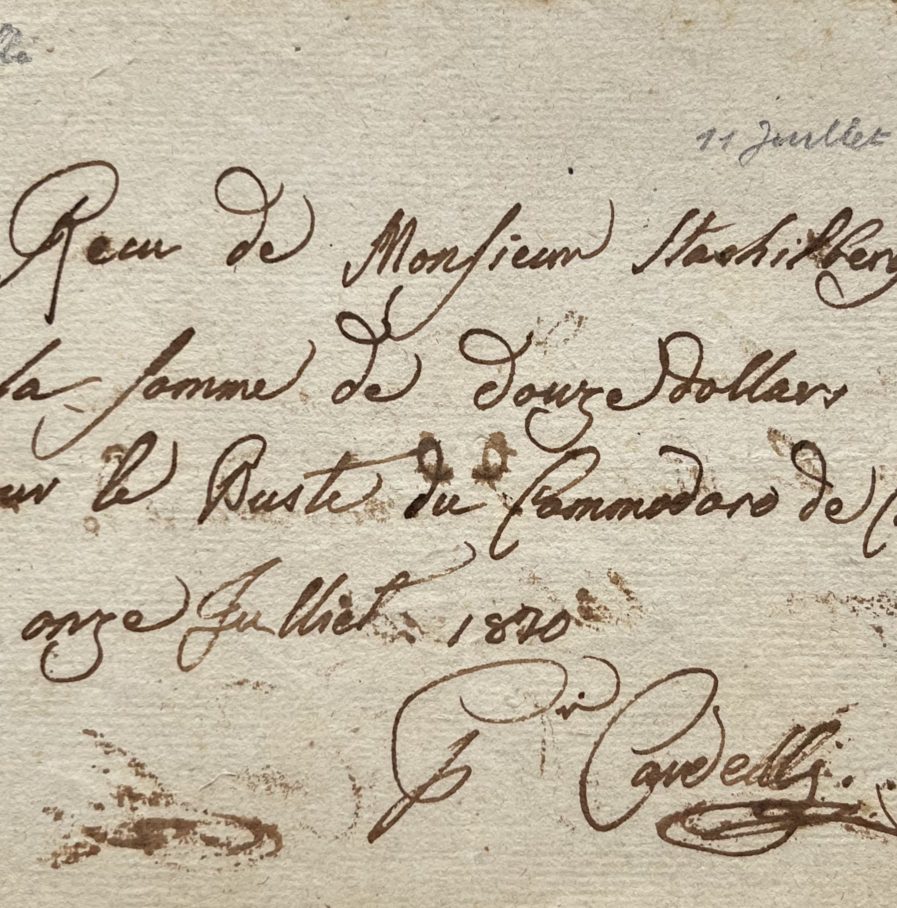 11 Juillet
Recu de Monsieur
la somme de douze dollars
ur le Buste du Commodore de
onze Julliet 1820
Pr Cardelli.